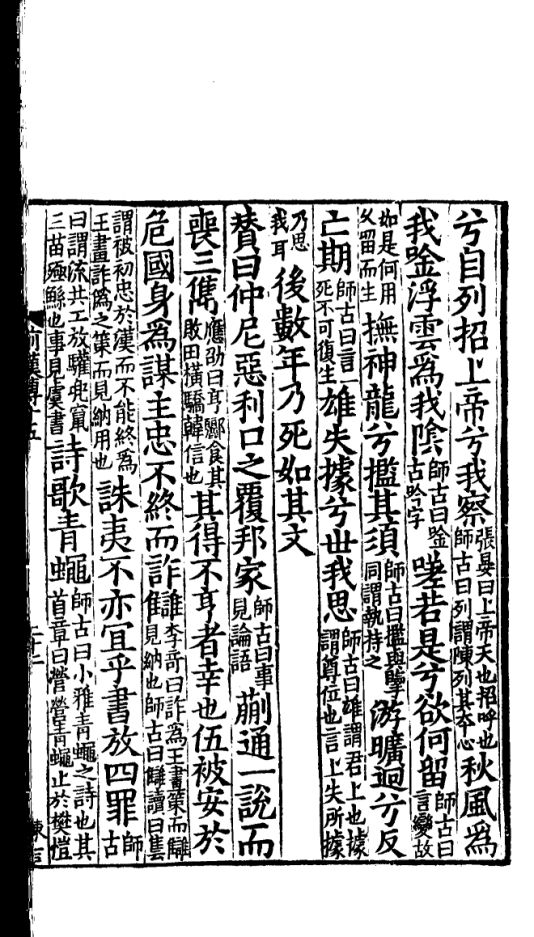 兮自列招上帝兮我察張晏曰上帝天也招呼也師古曰列謂陳列其本心秋風爲
我唫浮雲爲我陰師古曰唫古吟字嗟若是兮欲何留師古曰言變故
如是何用久留而生撫神龍兮攬其須師古曰攬與擥同謂執持之游曠迥兮反
亡期師古曰言一死不可復生雄失據兮世我思師古曰雄謂君上也據謂尊位也言上失所據
乃思我耳後數年乃死如其文
贊曰仲尼惡利口之覆邦家師古曰事見論語蒯通一說而
喪三儁應劭曰亨酈食其敗田橫驕韓信也其得不亨者幸也伍被安於
危國身爲謀主忠不終而詐讎李奇曰詐爲王畫策而讎見納也師古曰讎讀曰售
謂被初忠於漢而不能終爲王畫詐僞之策而見納用也誅夷不亦宜乎書放四罪師古
曰謂流共工放驩兜竄三苗殛鯀也事見虞書詩歌青蠅師古曰小雅青蠅之詩也其首章曰營營青蠅止於樊愷
前漢傳十五